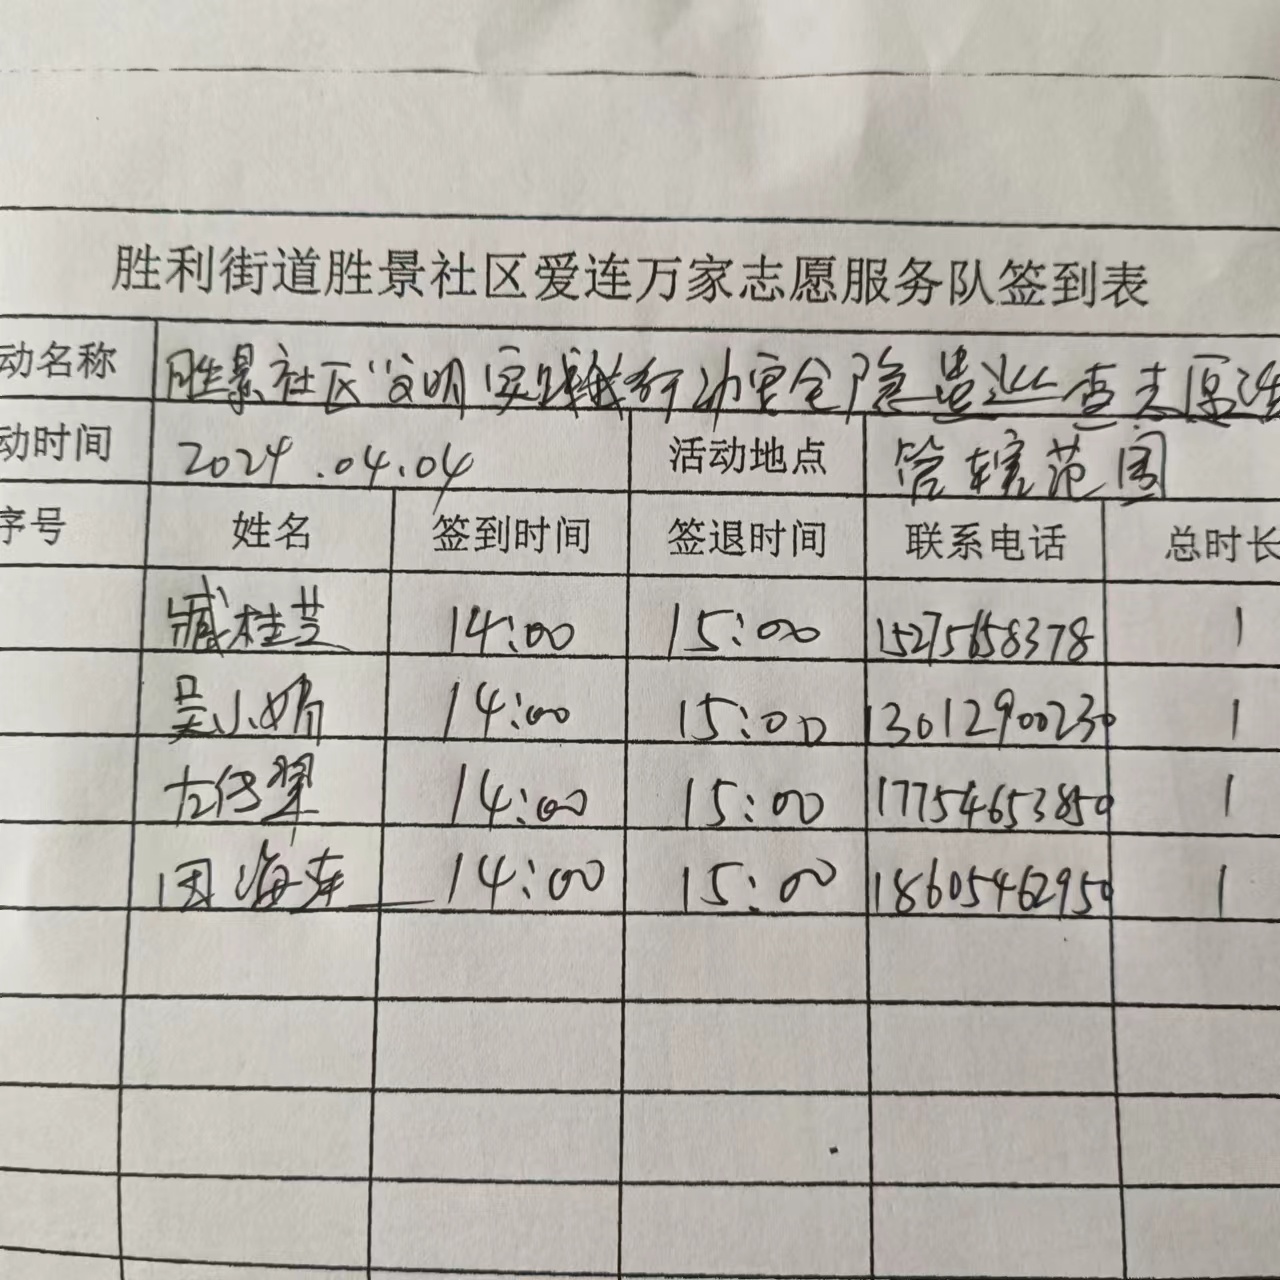 胜利街道胜景社区爱连万家志愿服务队签到表
动名称 胜景社区"文明实践我行动安全隐患巡查志愿
动时间 2024.04.04 活动地点 管辖范围
序号 姓名 签到时间 签退时间 联系电话 总时长
臧桂芝 14:00 15:00 15275658378 1
吴小娟 14:00 15:00 13012900230 1
14:00 15:00 17754653850 1
14:00 15:00 18605462950 1